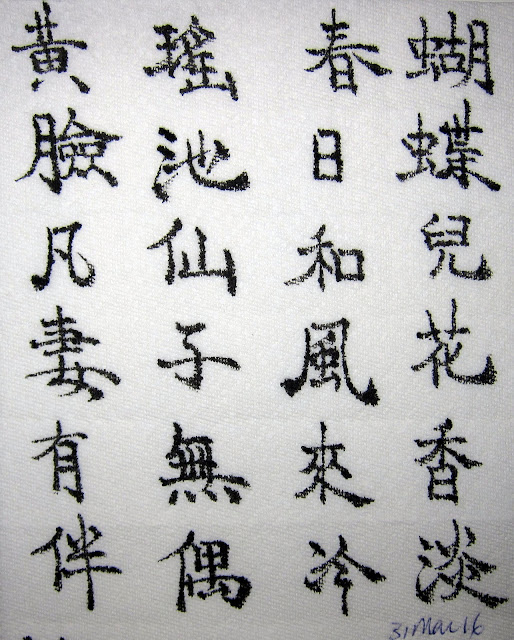 蝴蝶兒花香淡
春日和風來冷
瑤池仙子無偶
黃臉凡妻有伴
31 Mar 16